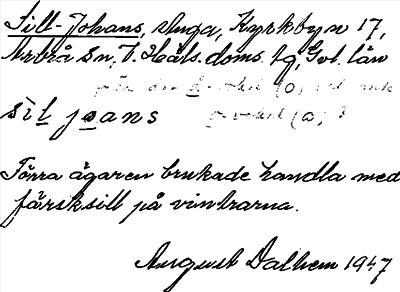 Sill-Johans, stuga, Kyrkbyn 17,
Arbrå sn, V. Häls. doms. tg, Gvl. län
sìl joans
Förra ägaren brukade handla med
färsksill på vintrarna.
August Dalhem 1947